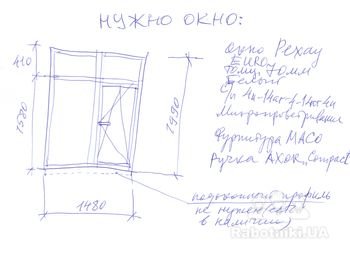 НУЖНО ОКНО:
410
1580
1990
1480
окно Рехау
EURO
70мм
Белый
С/п
Микропроветривание
Фурнитура MACO
Ручка AXOR „Compact"
подоконный профиль
не нужен (есть
в наличии)
Rabotniki.UA